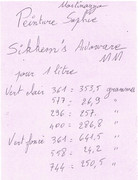 Peinture Sophie
Sikkens Autowave
MM
pour 1 litre
Vert clair 361 = 353,5 grammes
577 = 26,9 "
296 = 257.
400 = 286,8 "
Vert foncé 361 = 641,5
558 = 24,2 "
744 = 250,5 "